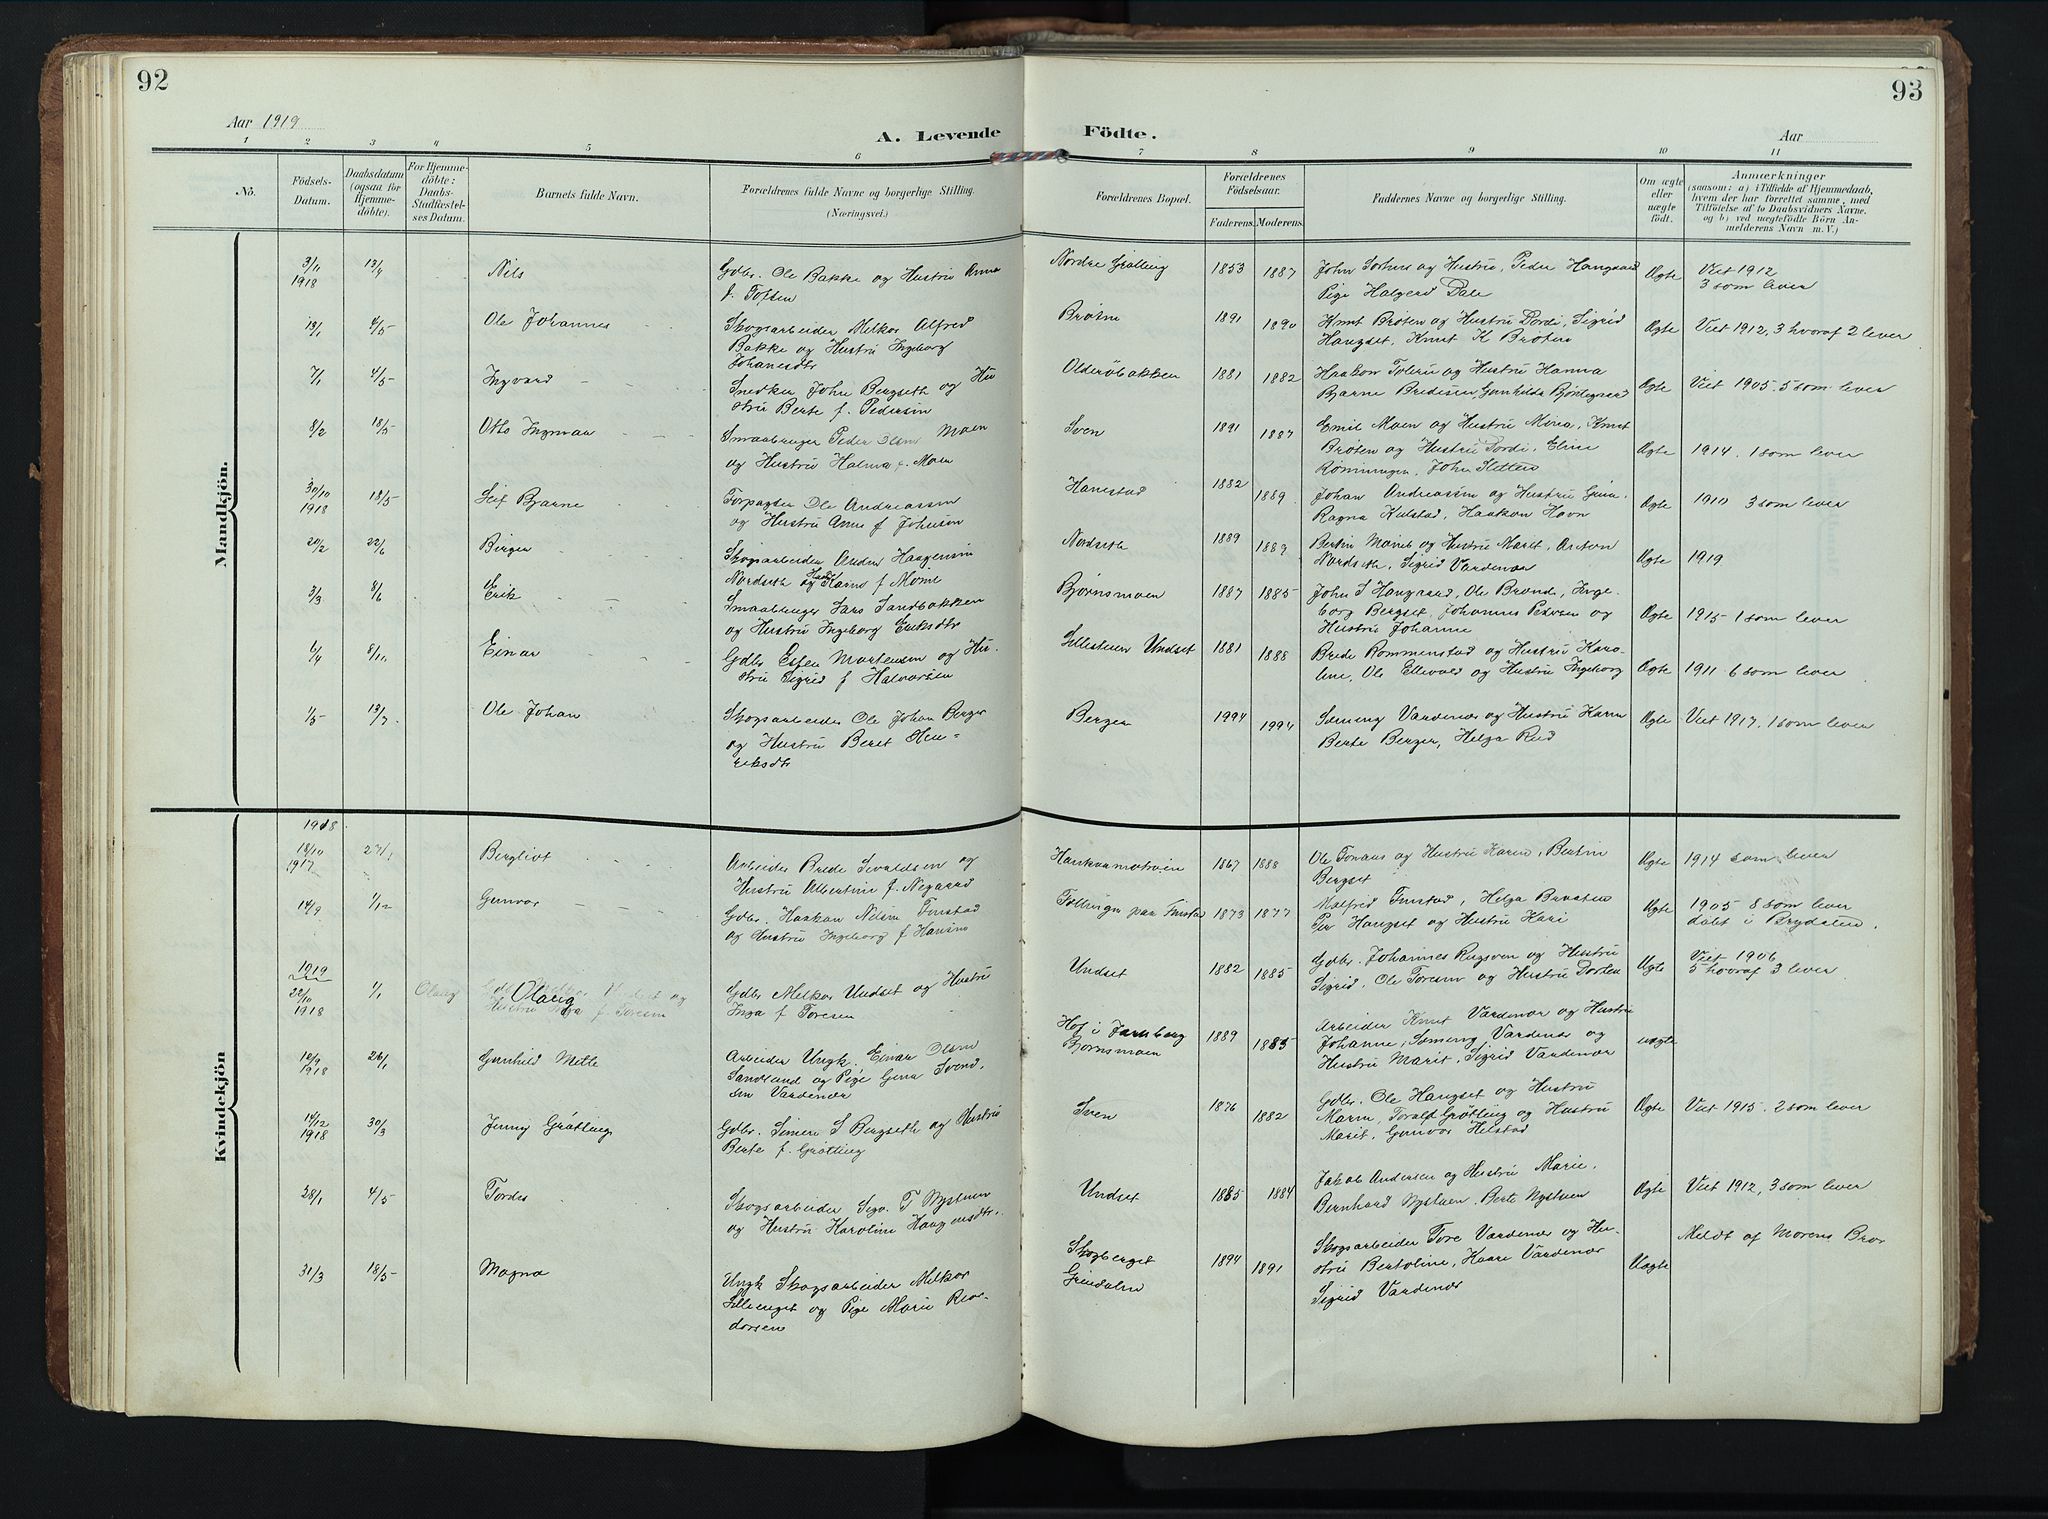 92
Aar 1919
A. Levende
1 2 3 4 5 6
Nô. Födsels-Datum. Daabsdatum (ogsaa for Hjemmedöbte). For Hjemmedöbte: Daabs-Stadfæstelses Datum. Barnets fulde Navn. Forældrenes fulde Navne og borgerlige Stilling. (Næringsvei.)
Mandkjön.
3/11 1918 13/4 Nils Gdbr. Ole Bakke og Hustru Anna
f. Tofsen
13/1 4/5 Ole Johannes Skogsarbeider Melkor Alfred
Bakke og Hustru Ingeborg
Johanesdtr
7/1 4/5 Ingvard Snedker John Bergseth og Hu
stru Berte f. Pedersen
8/2 18/5 Otto Ingvar Smaabruger Peder Olsen Moen
og Hustru Halma f. Moen
30/10 1918 18/5 Leif Bjarne Forpagter Ole Andreassen
og Hustru Anne f Johnsen
20/2 22/6 Birger Skogsarbeider Anders Haagensen
Nordseth og Hustru Karen f Moni
3/3 8/6 Erik Smaabruger Lars Sandbakken
og Hustru Ingeborg Eriksdtr
6/4 8/11 Einar Gdbr Esten Mortensen og Hu-
stru Sigrid f Halvorsen
1/5 13/7 Ole Johan Skogsarbeider Ole Johan Berger
og Hustru Beret Olen-
riksdtr
Kvindekjön
1918.
18/10 1917 27/1 Bergliot Arbeider Brede Sivaldsen og
Hustru Albertine f. Negaard
14/9 1/12 Gunvor Gdbr. Haakon Nilsen Finstad
og Hustru Ingeborg f Hansen
1919
22/10 1918 1/1 Olaug Olaug Gdbr Melkor Undset og Hustru
Inga f Toresen
10/9 1918 26/1 Gunhild Mette Arbeider Ungk. Einar Olsen
Sandsund og Pige Gena Svend.
sen Vardenær
14/12 1918 30/3 Jenny Grötting Gdbr. Simen S Bergseth og Hustru
Berte f. Grötting
28/1 4/5 Tordes Skogsarbeider Sigv. T Nystuen
og Hustru Karoline Haagensdtr.
31/3 18/5 Magna Ungk Skogsarbeider Melkor
Lilleenget og Pige Marie Rear-
dorsen
93
Födte.
Aar
7 8 9 10 11
Forældrenes Bopæl. Forældrenes Födselsaar. Faderens. Moderens. Faddernes Navne og borgerlige Stilling. Om ægte eller uægte födt. Anmærkninger (saasom: a) i Tilfælde af Hjemmedaab, hvem der har forrettet samme, med Tilföielse af to Daabsvidners Navne, og b) ved uægtefödte Börn Anmelderens Navn m. V.)
Nordre Grötting 1853 1887 John Sorhus og Hustru, Peder Haugaard
Pige Halgerd Dale Ægte Viet 1912
3 som lever
Bröten 1891 1890 Knut Bröten og Hustru Dordi, Sigrid
Hangset, Knut K Bröten Ægte Viet 1912, 3 hvoraf 2 lever
Olderöbakken 1881 1882 Haakon Toleru og Hustru Hanna
Bjarne Bredesen, Gunhilda Björtegaard Ægte Viet 1905. 5 som lever
Sven 1891 1887 Emil Moen og Hustru Mina, Knut
Bröten og Hustru Dordi, Eline
Römningen, John Sletten Ægte 1914. 1 som lever
Hanestad 1882 1889 Johan Andreassen og Hustru Gina,
Ragna Kulstad, Haakon Hovn Ægte 1910 3 som lever
Nordseth 1889 1889 Bertin Moneb og Hustru Marit, Anton
Nordseth, Sigrid Vardenær Ægte 1919
Björnsmoen 1887 1885 John S Haugaard, Ole Brænde, Inge-
borg Bergset, Johannes Pedersen og
Hustru Johanne Ægte 1915 - 1 som lever
Lillestuen Undset 1881 1888 Brede Rommenstad og Hustru Karo-
line, Ole Ellevold og Hustru Ingeborg Ægte 1911 6 som lever
Berger 1994 1994 Semeng Vardenær og Hustru Karen
Berte Berger, Helga Rud Ægte Viet 1917. 1 som lever
1867 1888 Ole Tonaas og Hustru Karen, Bertin
Bergset Ægte 1914 som lever
1873 1877 Malfred Finstad, Helga Braaten
Per Hangset og Hustru Kari Ægte 1905 8 som lever
döbt i Brydalen.
Undset 1882 1885 Gdbr. Johannes Rugsven og Hustru
Sigrid, Ole Toresen og Hustru Dorten Ægte Viet 1906
5 hvoraf 3 lever
Hof i Jarnberg
Bjornsmoen 1889 1885 Arbeider Knut Vardenær og Hustru
Johanne, Semeng Vardenær og
Hustru Marit, Sigrid Vardenær uægte
Sven 1876 1882 Gdbr. Ole Hangset og Hustru
Maren, Toralf Grötting og Hustru
Marit, Gunvor Helstad Ægte Viet 1915. 2 som lever
Undset 1885 1884 Jakob Andersen og Hustru Marie,
Bernhard Nystuen, Berte Nystuen Ægte Viet 1912, 3 som lever
Skogberget
Grindalen 1894 1891 Skogsarbeider Tore Vardenær og Hu-
stru Bertoline, Haare Vardenær
Sigrid Vardenær Uægte Meldt af Morens Bror